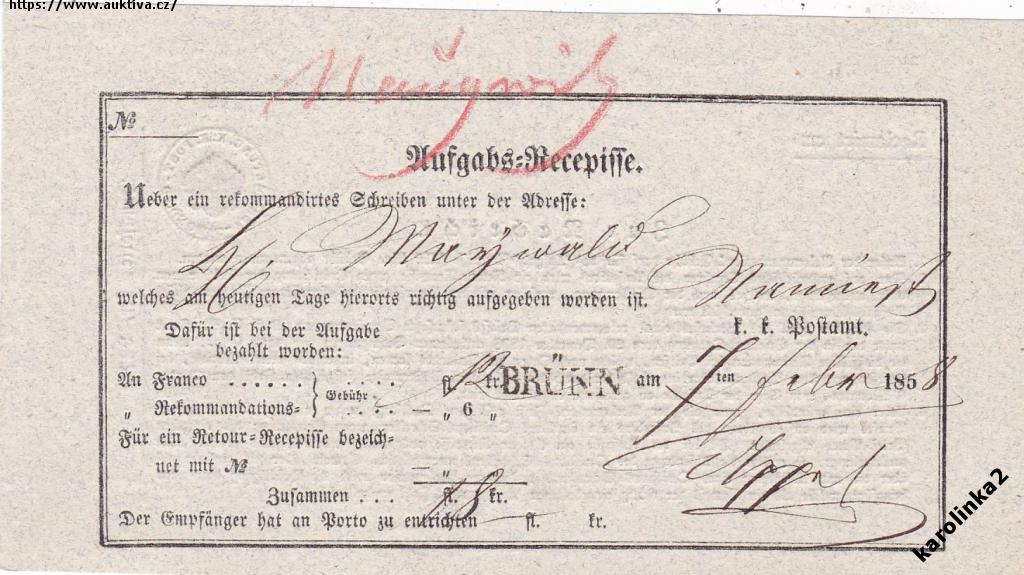 https://www.auktiva.cz/
№
Aufgabs=Recepisse.
Ueber ein rekommandirtes Schreiben unter der Adresse:
Maywald
Namiest
welches am heutigen Tage hierorts richtig aufgegeben worden ist.
k. k. Postamt.
Dafür ist bei der Aufgabe
bezahlt worden:
An Franco ...... } Gebühr .... fl. 12 kr.
BRÜNN am 7ten Febr 1858
„ Rekommandations= .... — „ 6 „
Für ein Retour=Recepisse bezeich=
net mit № — „ „
Appel
Zusammen ... fl. 18 kr.
Der Empfänger hat an Porto zu entrichten fl. kr.
karolinka2